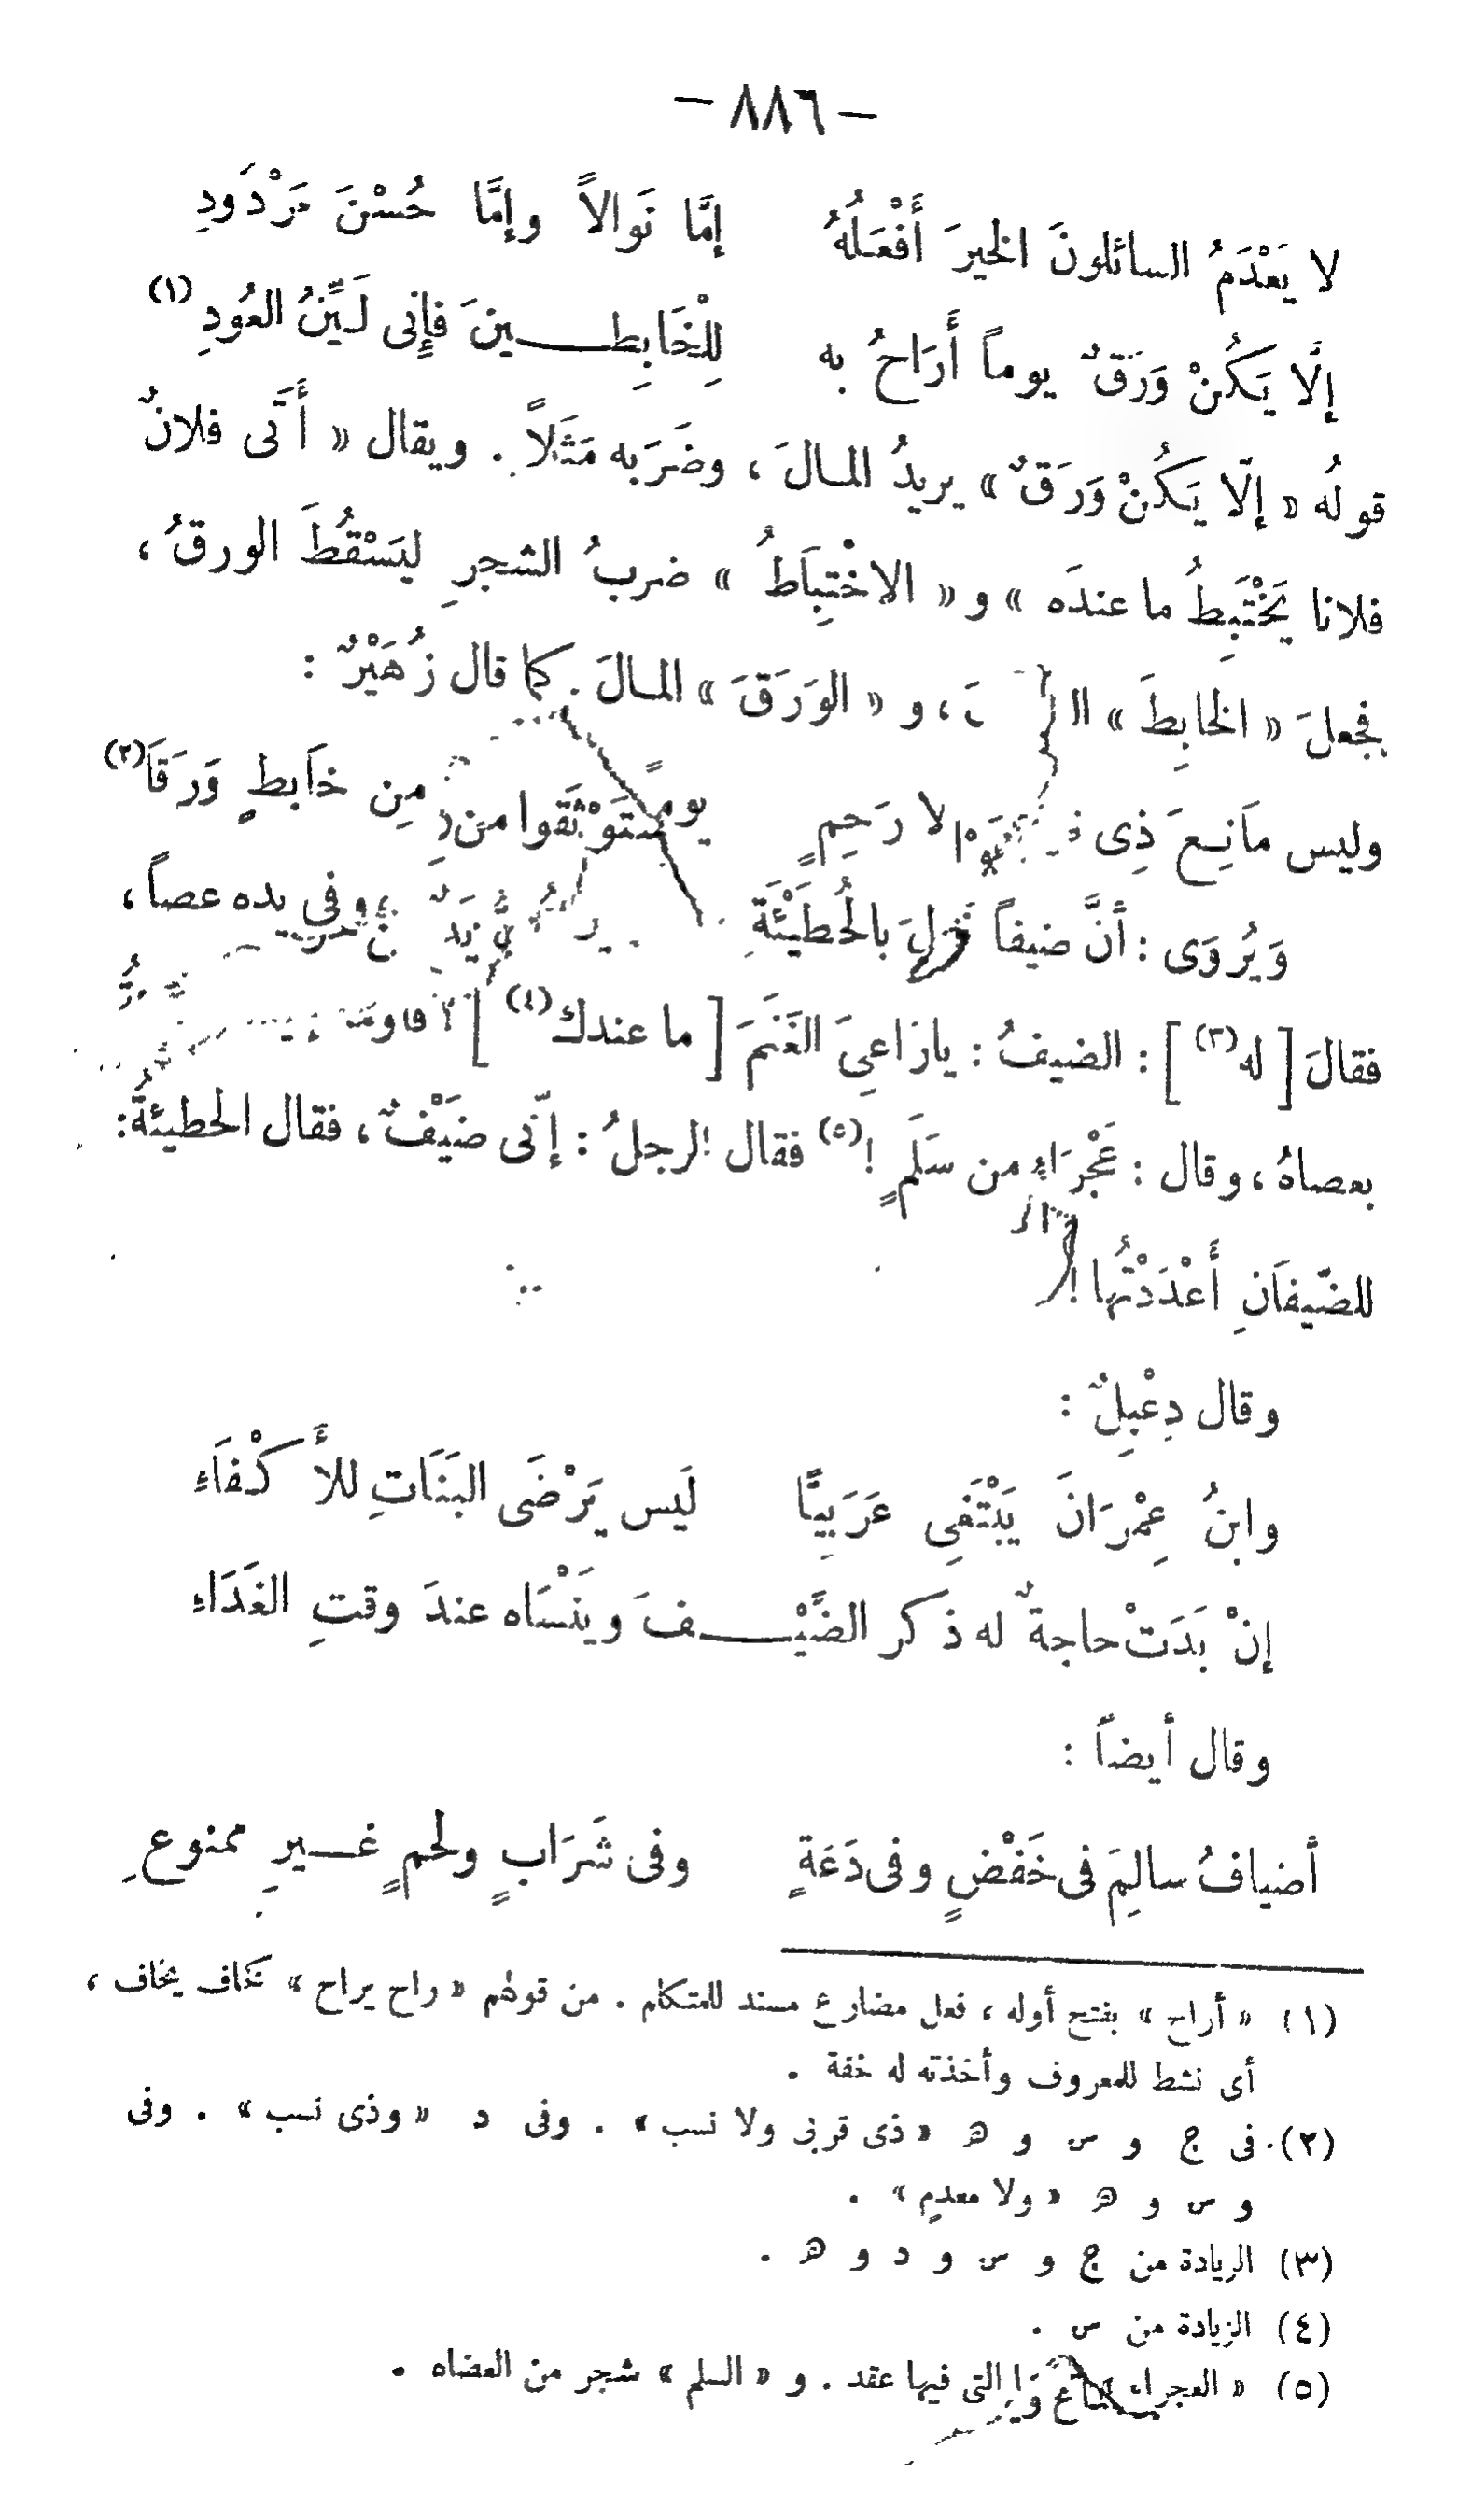 — ٨٨٦ —
لا يَعْدَمُ السائلونَ الخيرَ أَفْعَلُهُ إمَّا نَوالاً وإمَّا حُسْنَ مَرْدُودِ
إلَّا يَكُنْ وَرَقٌ يوماً أَرَاحُ به لِلْخَابِطِينَ فإِنى لَيِّنُ العُودِ (١)
قولُه « إلّا يَكُنْ وَرَقٌ » يريدُ المالَ ، وضَرَبه مَثَلاً . ويقال « أَتَى فلانٌ
فلانا يَخْتَبِطُ ما عندَه » و « الاخْتِبَاطُ » ضربُ الشجرِ ليَسْقُطَ الورقُ ،
فجعلَ « الخابِطَ » ، و « الوَرَقَ » المالَ . كما قال زُهَيْرٌ :
وليس مَانِعَ ذِى ولا رَحِمٍ يوماً مِن خَابطٍ وَرَقَا (٢)
وَيُرْوَى : أنَّ ضيفاً نَزلَ بالحُطَيْئَةِ وفى يده عصاً ،
فقالَ [ له (٣) ] : الضيفُ : ياراعىَ الغَنَمَ [ ما عندك (٤) ] ؟
بعصاهُ ، وقال : عَجْرَاءِ من سَلَمٍ ! (٥) فقال الرجلُ : إنّى ضَيْفٌ ، فقال الحطيئةُ :
للضّيفَانِ أَعْدَدْتُها !
وقال دِعْبِلٌ :
وابنُ عِمْرَانَ يَبْتَغِى عَرَبِيًّا لَيس يَرْضَى البَنَاتِ للأَكْفَاءِ
إنْ بَدَتْ حاجةٌ له ذكر الضَّيْفَ ويَنْسَاه عندَ وقتِ الغَدَاءِ
وقال أيضاً :
أضيافُ سالِمَ فى خَفْضٍ وفى دَعَةٍ وفى شَرَابٍ ولحمٍ غيرِ ممنوعِ
(١) « أراح » بفتح أوله ، فعل مضارع مسند للمتكلم . من قولهم « راح يراح » كخاف يخاف ،
أى نشط للمعروف وأخذته له خفة .
(٢) فى ج و س و ه « ذى قربى ولا نسب » . وفى د « وذى نسب » . وفى
و س و ه « ولا معدم » .
(٣) الزيادة من ج و س و د و ه .
(٤) الزيادة من س .
(٥) « العجراء » التى فيها عقد . و « السلم » شجر من العضاه .